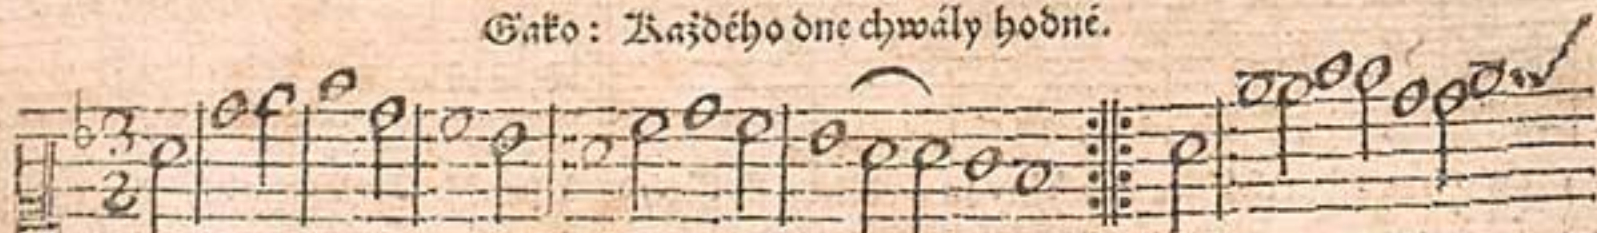 Gako: Každého dne chwály hodné.
3
2